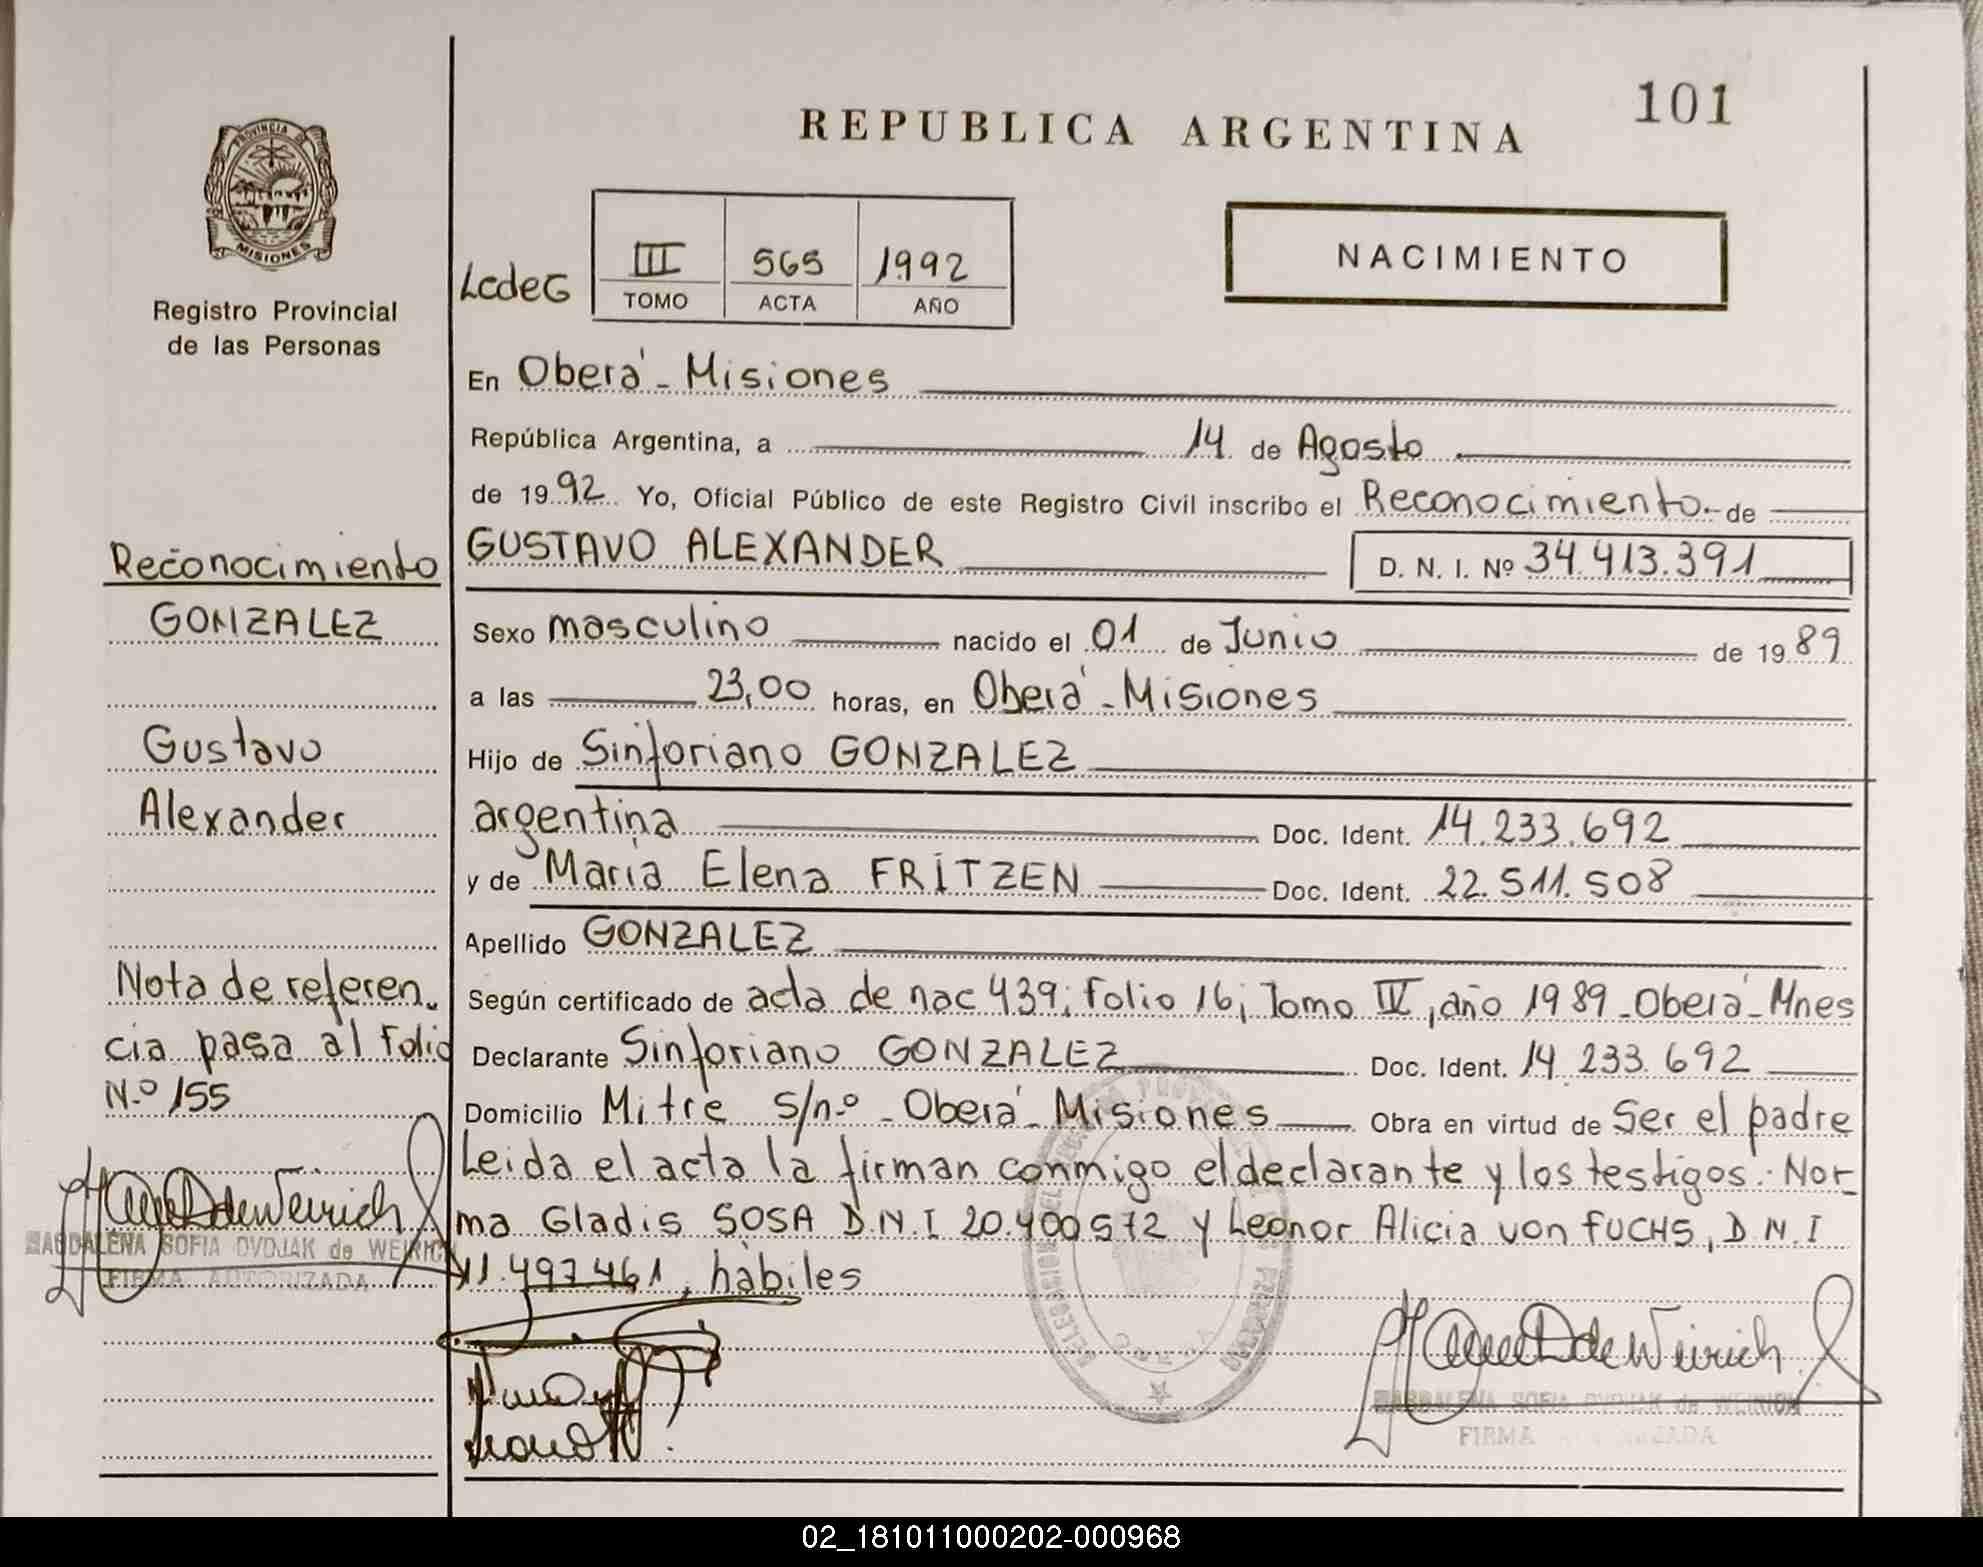 101
REPUBLICA ARGENTINA
PROVINCIA DE
MISIONES
Registro Provincial
de las Personas
LcdeG
III 565 1992
TOMO ACTA AÑO
NACIMIENTO
En Oberá - Misiones
República Argentina, a 14 de Agosto
de 1992 Yo, Oficial Público de este Registro Civil inscribo el Reconocimiento de
GUSTAVO ALEXANDER D. N. I. Nº 34.413.391
Sexo masculino nacido el 01 de Junio de 1989
a las 23,00 horas, en Oberá - Misiones
Hijo de Sinforiano GONZALEZ
argentina Doc. Ident. 14.233.692
y de María Elena FRITZEN Doc. Ident. 22.511.508
Apellido GONZALEZ
Según certificado de acta de nac 439; folio 16; Tomo IV, año 1989 - Oberá - Mnes
Declarante Sinforiano GONZALEZ Doc. Ident. 14.233.692
Domicilio Mitre s/nº - Oberá - Misiones Obra en virtud de Ser el padre
Leida el acta la firman conmigo el declarante y los testigos: Nor-
ma Gladis SOSA D.N.I 20.400572 y Leonor Alicia von FUCHS, D.N.I
11.497.461, habiles
Reconocimiento
GONZALEZ
Gustavo
Alexander
Nota de referen-
cia pasa al folio
N.º 155
MAGDALENA SOFIA DVDJAK de WEIRICH
FIRMA AUTORIZADA
MAGDALENA SOFIA DVDJAK de WEIRICH
FIRMA AUTORIZADA
02_181011000202-000968